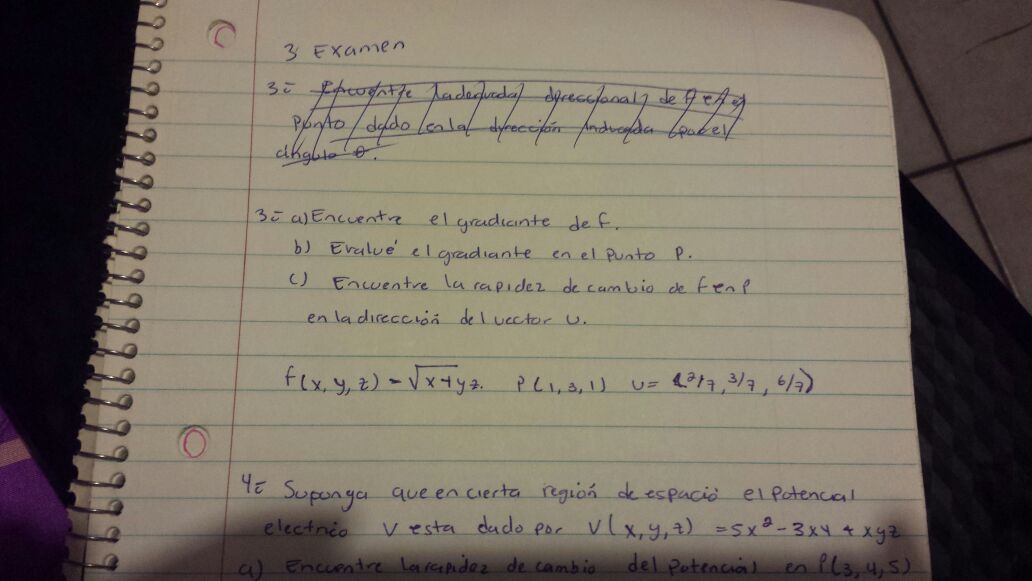 3 Examen
3= Encuentre la derivada direccional de f en el
punto dado en la dirección indicada por el
ángulo θ.
3= a) Encuentre el gradiante de f.
b) Evalué el gradiante en el punto P.
c) Encuentre la rapidez de cambio de f en P
en la dirección del vector u.
f(x, y, z) = √x+yz. P(1, 3, 1) u= (2/7, 3/7, 6/7)
4= Suponga que en cierta región de espacio el potencial
electrico V esta dado por V(x, y, z) = 5x² - 3xy + xyz
a) Encuentre la rapidez de cambio del potencial en P(3, 4, 5)